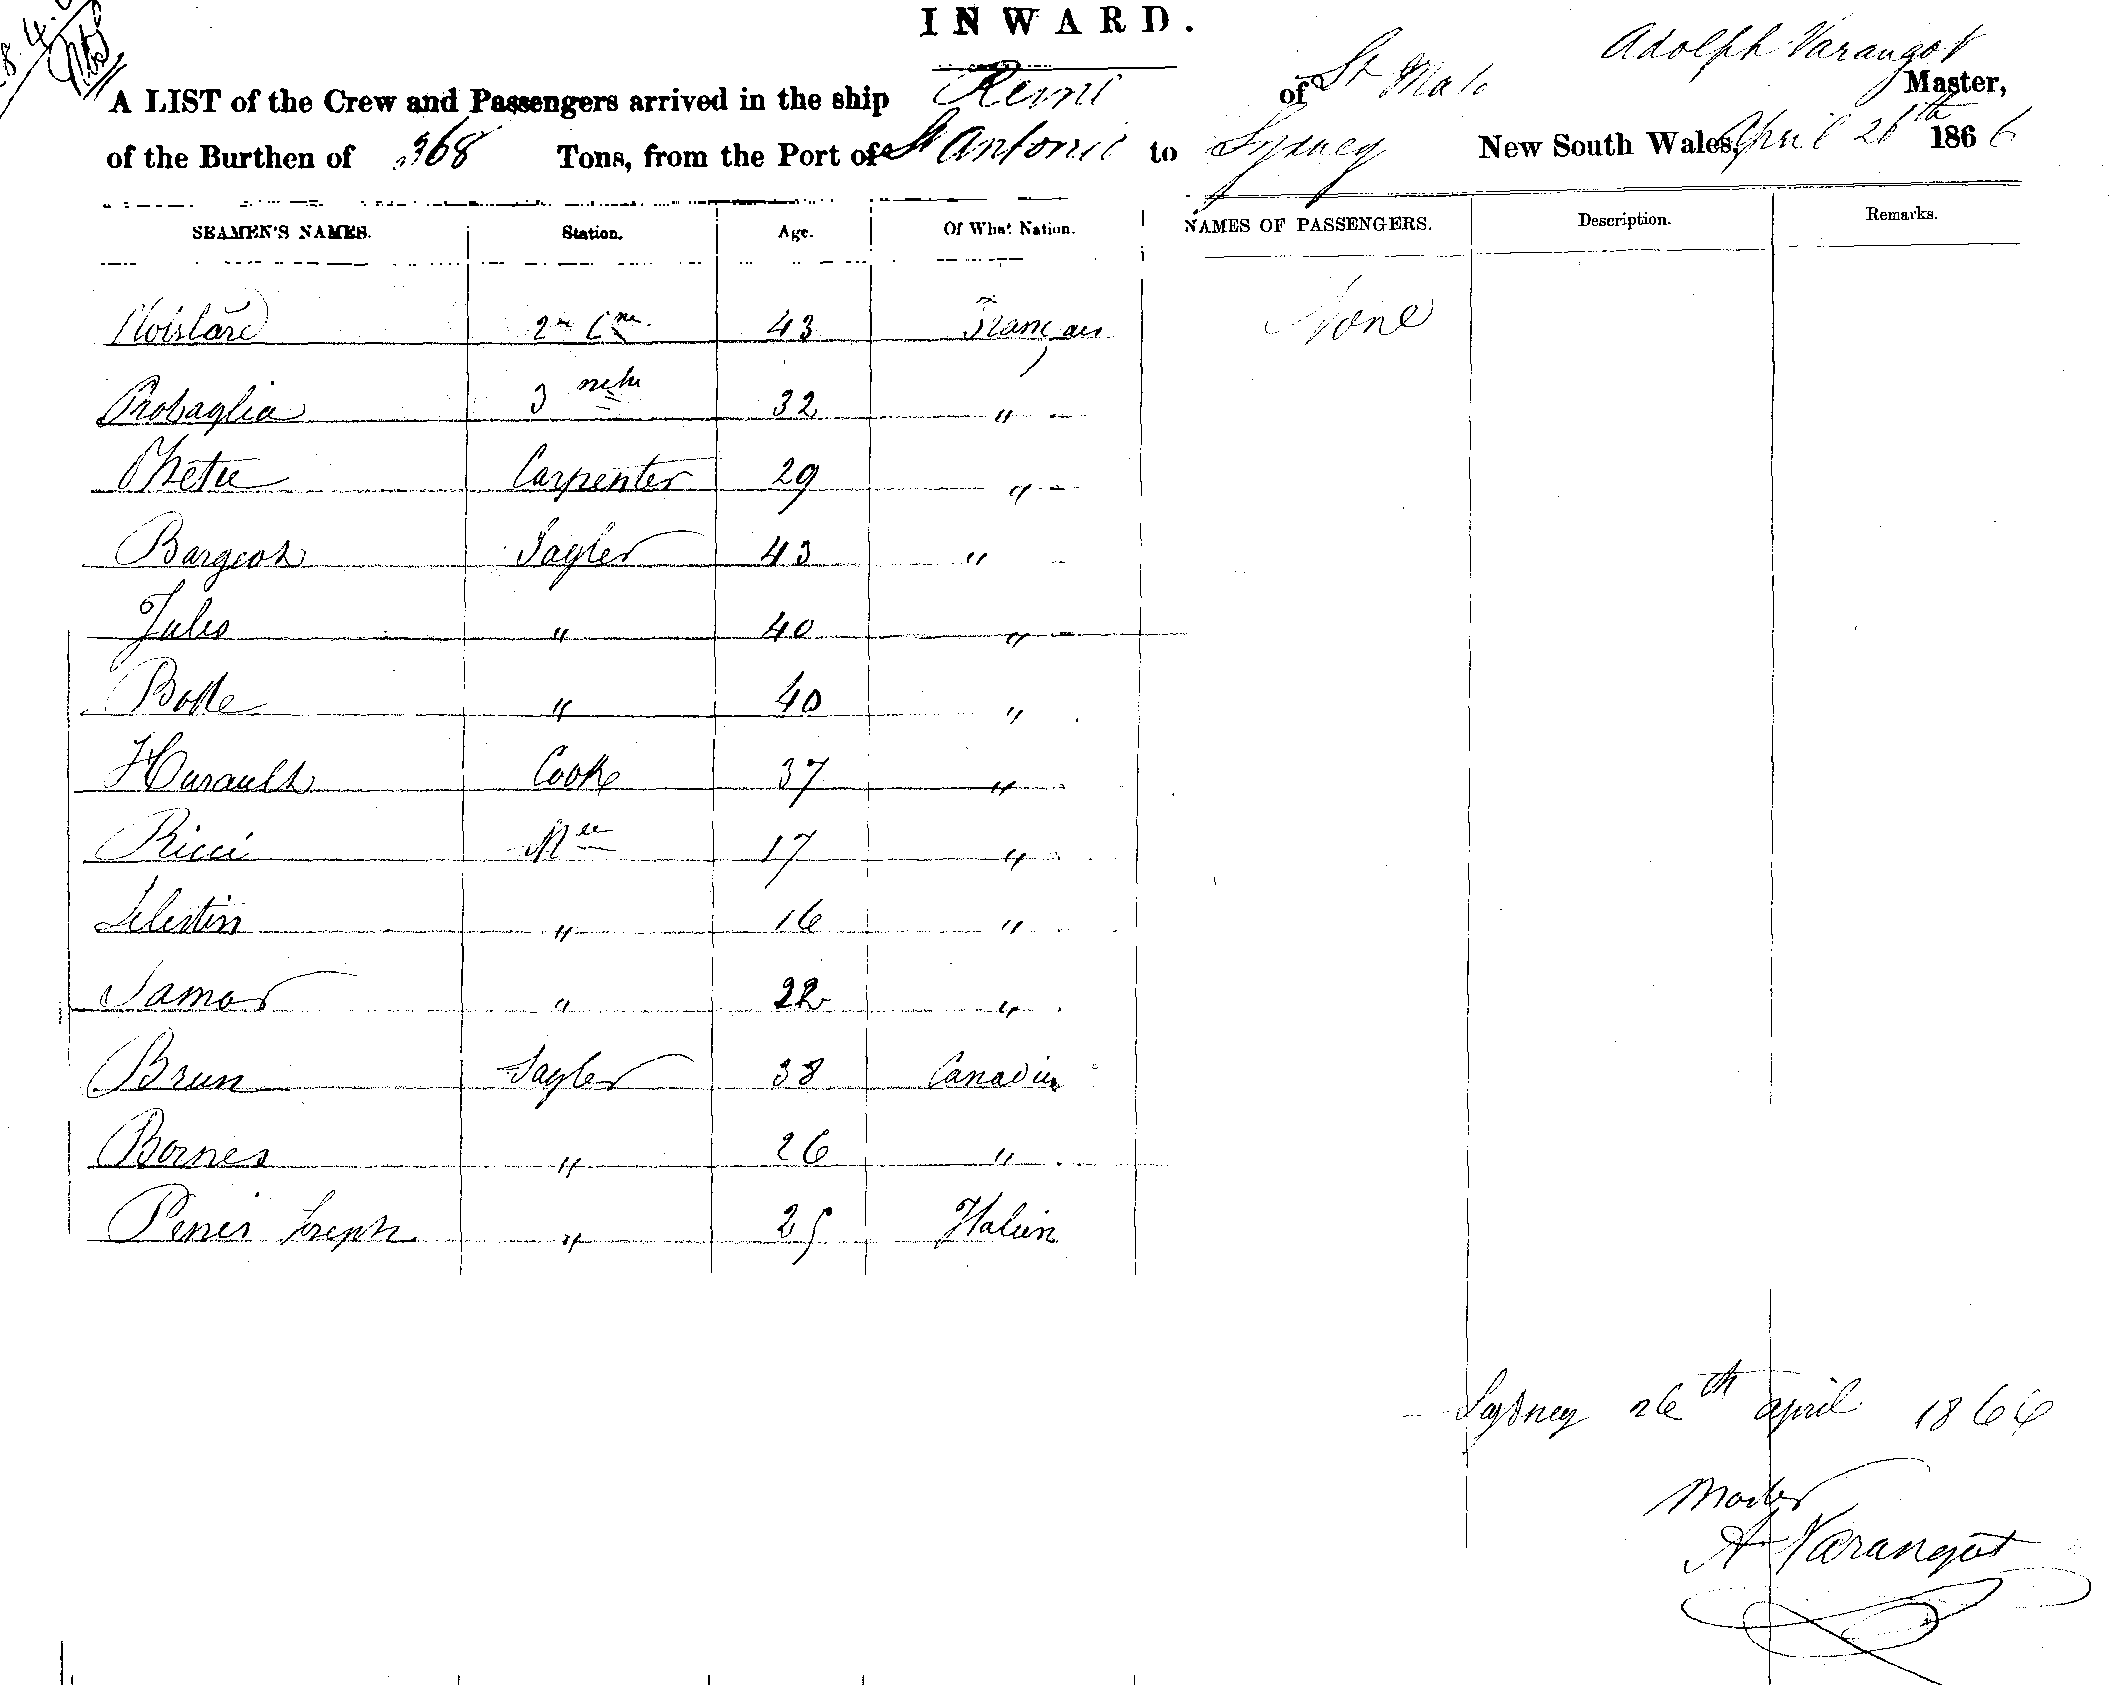 INWARD.
A LIST of the Crew and Passengers arrived in the ship Remi of St Malo Adolph Varangot Master,
of the Burthen of 368 Tons, from the Port of St Antonio to Sydney New South Wales, April 26th 1866
SEAMEN'S NAMES. Station. Age. Of What Nation. NAMES OF PASSENGERS. Description. Remarks.
2 43 Français None
Probaglia 3 32 "
Carpenter 29 "
Bargeot Sayler 43 "
Jules " 40 "
Botte " 40 "
Hurault Cooke 37 "
Ricci 17 "
Celestin " 16 "
Jamor " 22 "
Brun Sayler 38 Canadien
Bornes " 26 "
Peneis Joseph " 25 Italien
Sydney 26th april 1866
Master
A Varangot